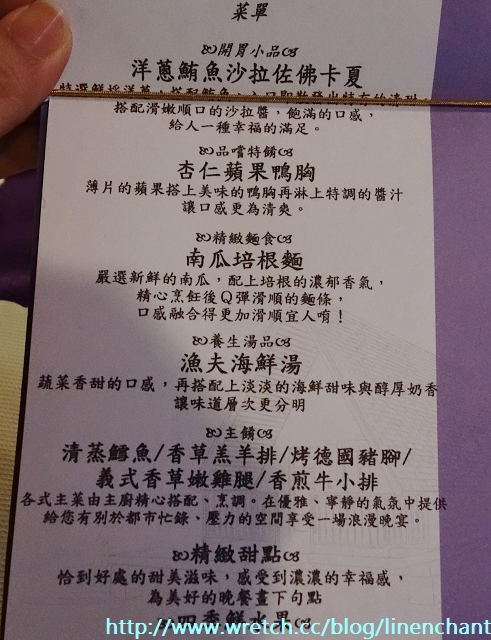 菜單
開胃小品
洋蔥鮪魚沙拉佐佛卡夏
特選鮮採洋蔥，搭配鮪魚，入口即散發出特有的清甜
搭配滑嫩順口的沙拉醬，飽滿的口感，
給人一種幸福的滿足。
品嚐特餚
杏仁蘋果鴨胸
薄片的蘋果搭上美味的鴨胸再淋上特調的醬汁
讓口感更為清爽。
精緻麵食
南瓜培根麵
嚴選新鮮的南瓜，配上培根的濃郁香氣，
精心烹飪後Q彈滑順的麵條，
口感融合得更加滑順宜人唷！
養生湯品
漁夫海鮮湯
蔬菜香甜的口感，再搭配上淡淡的海鮮甜味與醇厚奶香
讓味道層次更分明
主餚
清蒸鱈魚/香草羔羊排/烤德國豬腳/
義式香草嫩雞腿/香煎牛小排
各式主菜由主廚精心搭配、烹調。在優雅、寧靜的氣氛中提供
給您有別於都市忙錄、壓力的空間享受一場浪漫晚宴。
精緻甜點
恰到好處的甜美滋味，感受到濃濃的幸福感，
為美好的晚餐畫下句點
四季鮮水果
http://www.wretch.cc/blog/linenchant